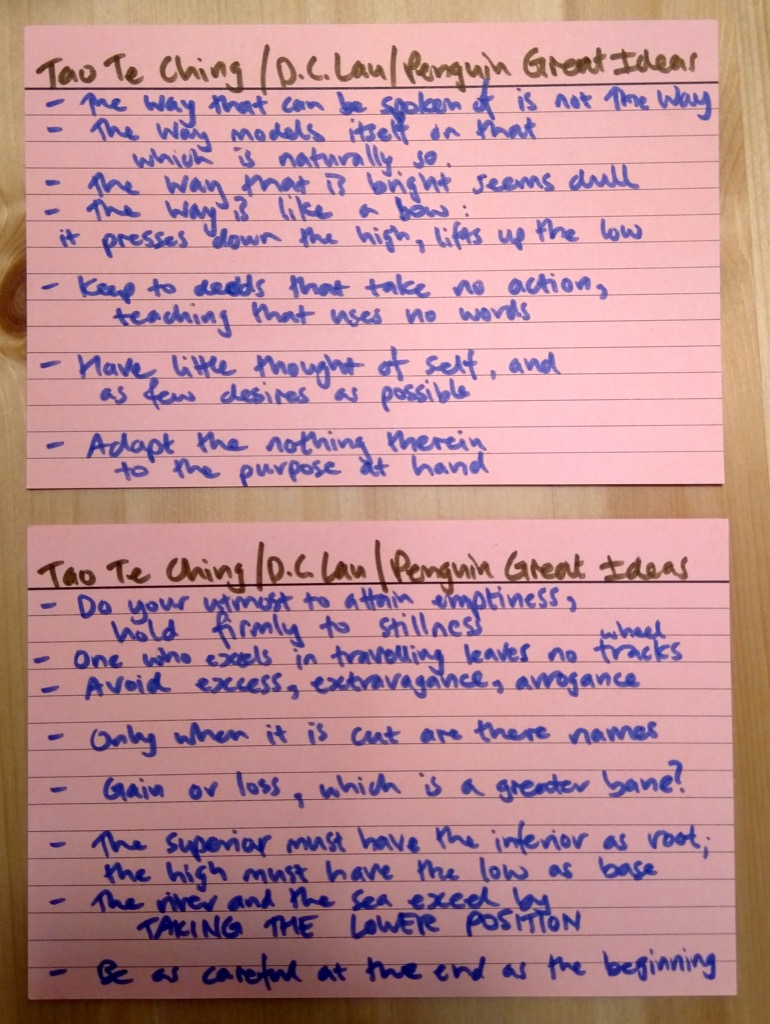 Tao Te Ching / D.C. Lau / Penguin Great Ideas
- The Way that can be spoken of is not The Way
- The Way models itself on that
which is naturally so.
- The Way that is bright seems dull
- The Way is like a bow:
it presses down the high, lifts up the low
- Keep to deeds that take no action,
teaching that uses no words
- Have little thought of self, and
as few desires as possible
- Adapt the nothing therein
to the purpose at hand
Tao Te Ching / D.C. Lau / Penguin Great Ideas
- Do your utmost to attain emptiness,
hold firmly to stillness
- One who excels in travelling leaves no wheel tracks
- Avoid excess, extravagance, arrogance
- Only when it is cut are there names
- Gain or loss, which is a greater bane?
- The superior must have the inferior as root;
the high must have the low as base
- The river and the sea excel by
TAKING THE LOWER POSITION
- Be as careful at the end as the beginning